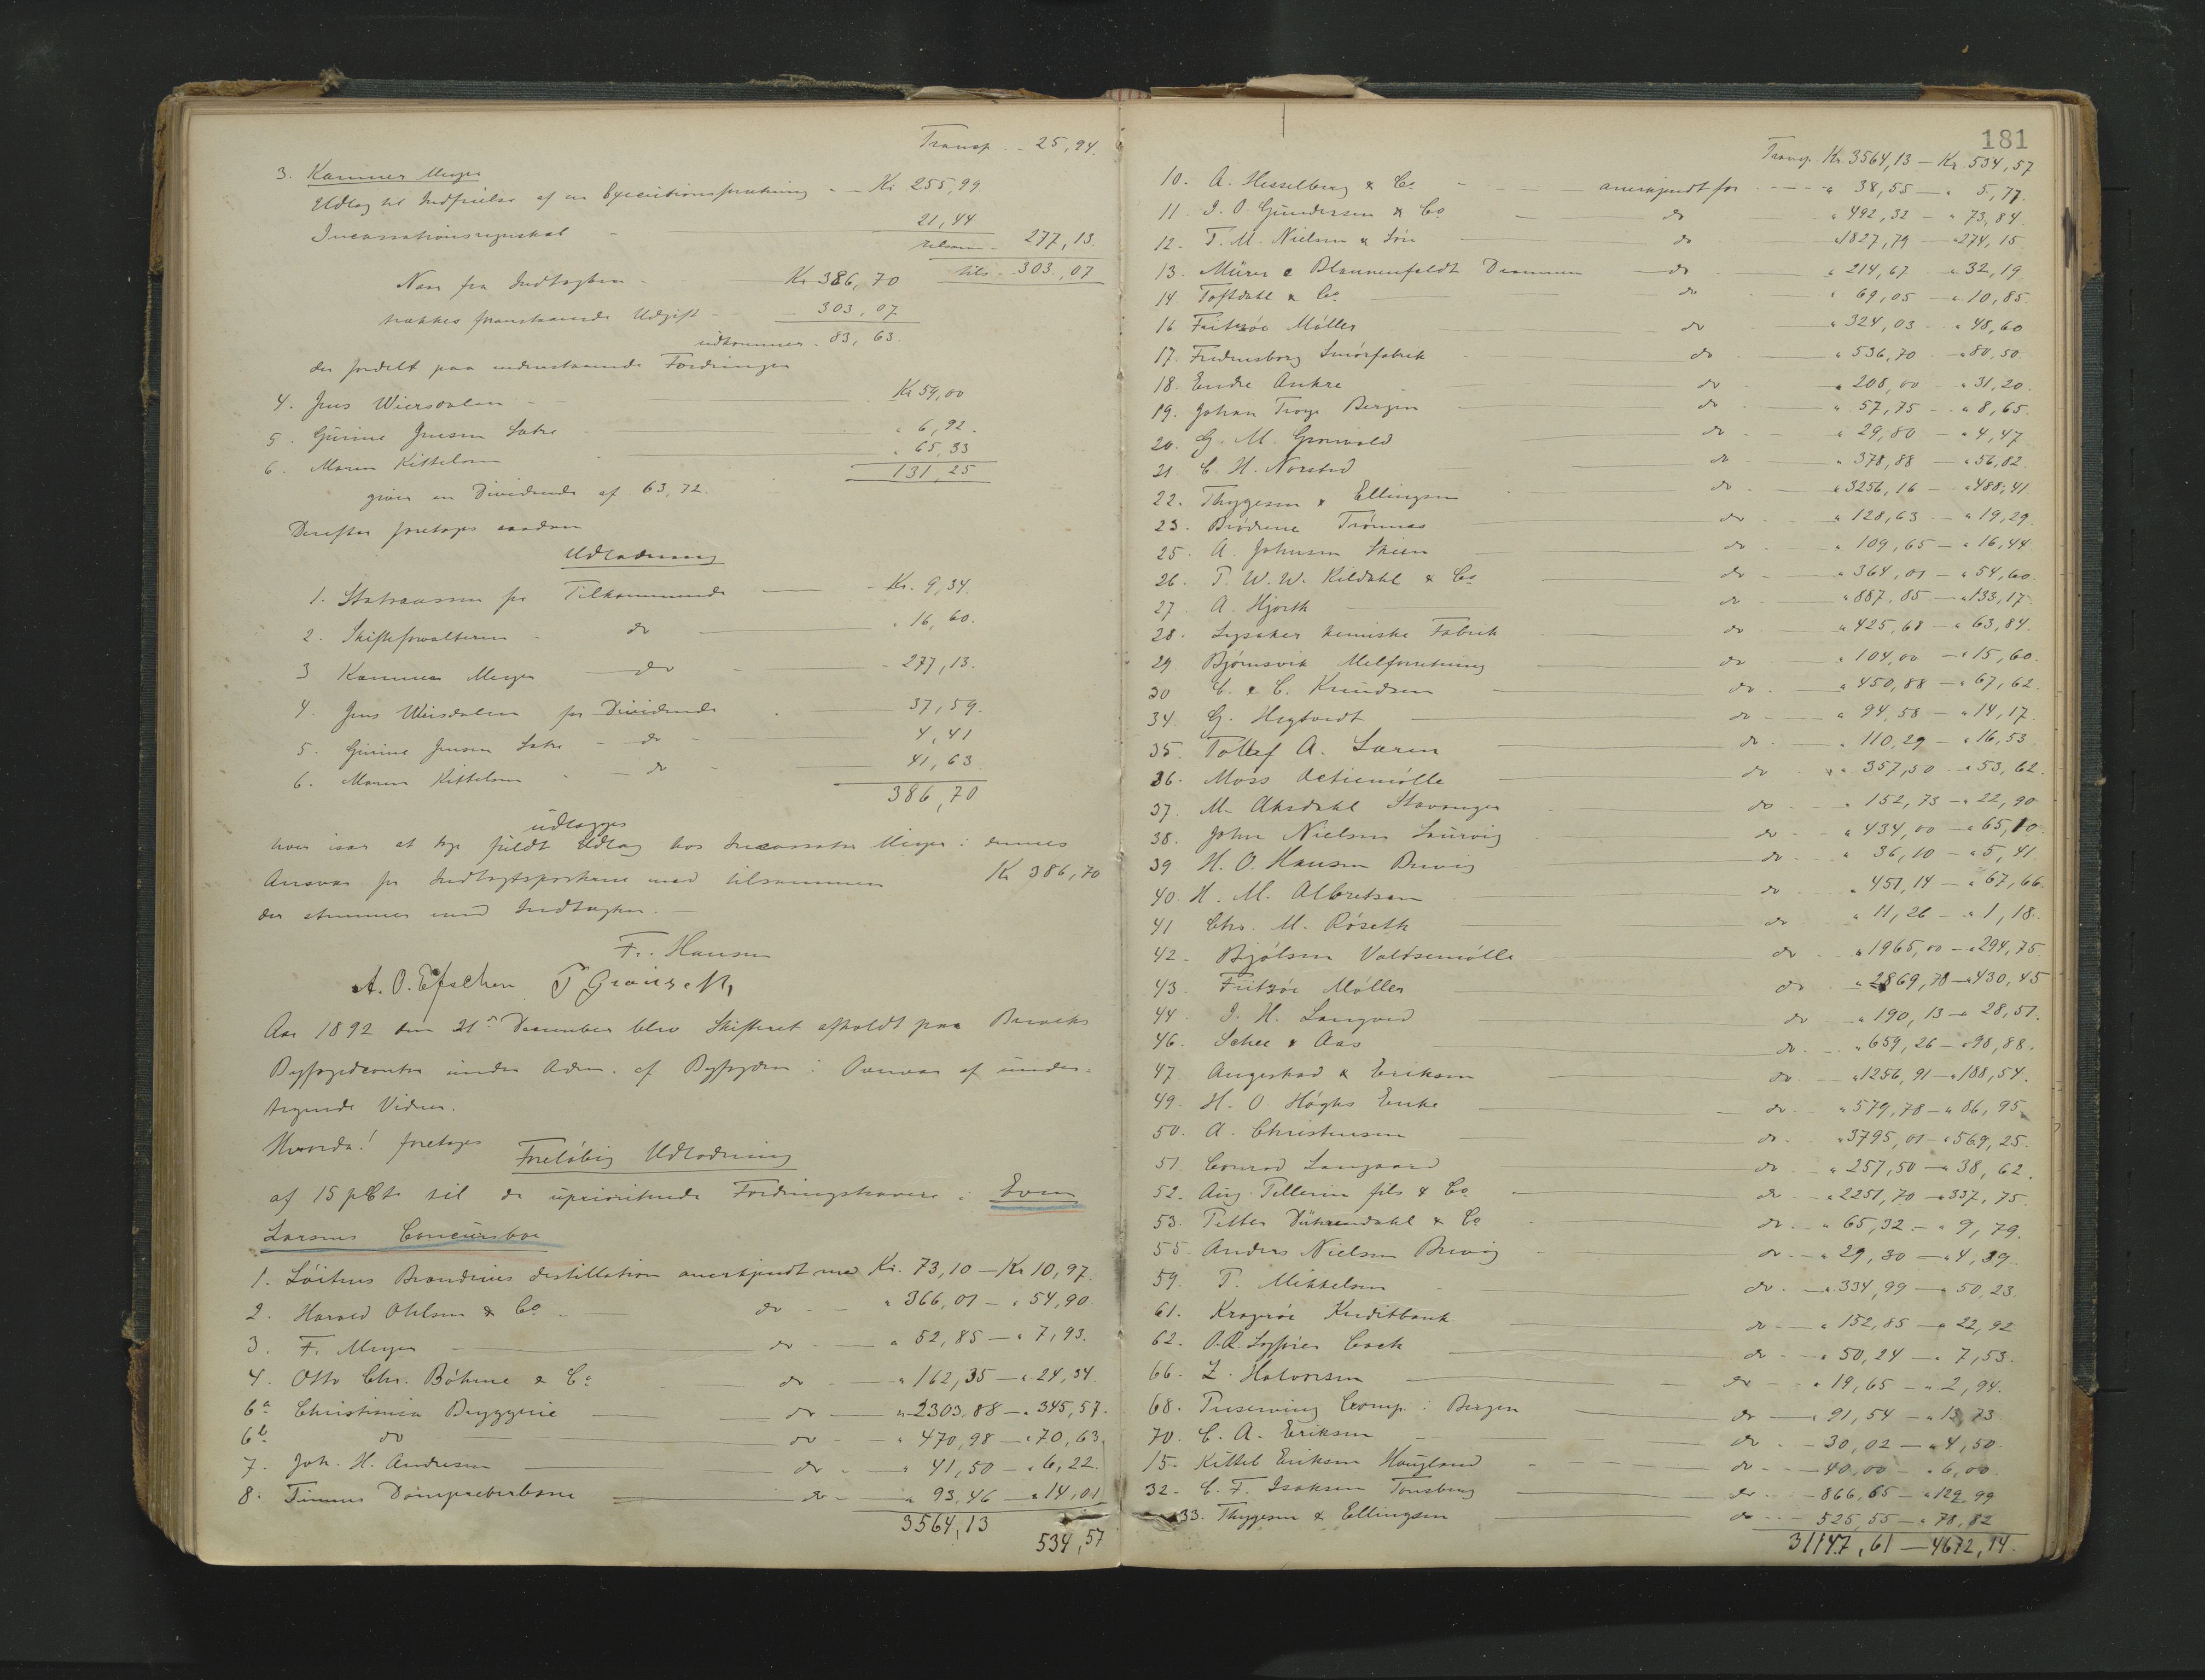 Transp. - 25,94.
3. Kæmner Meyer
Udlæg til Indfrielse af en Executionsforretning - - Kr. 255,99
Incassationsregnskab - 21,44
tilsam - 277,13.
tils. - 303,07
Naar fra Indtægten - Kr 386,70
trækkes foranstaaende Udgift - 303,07
udkommer - 83,63.
der fordelt paa underestaaende Fordringer
4. Jens Wiersdalen - - Kr 59,00
5. Gurine Jensen Sætre " 6,92.
6. Maren Kittelsen " 65,33
131,25
giver en Dividende af 63,72.
Derefter foretoges saadan
Udlodning
1. Statscassen for Tilkommende - Kr. 9,34.
2. Skifteforvalteren - do " 16,60.
3 Kæmner Meyer do - 277,13.
4. Jens Wiersdalen for Dividende - 37,59.
5. Gurine Jensen Sætre - do - 4,41
6. Maren Kittelsen - do - 41,63
386,70
udlægges
hver især at tage fuldt Udlæg hos Incassator Meyer i dennes
Ansvar for Indtægtsposterne med tilsammen Kr 386,70
der stemmer med Indtægten. -
F. Hansen
A. O. Efschen
Aar 1892 den 21de December blev Skifteret afholdt paa Breviks
Byfogedcontor under Adm. af Byfogden i Overvær af under-
tegnede Vidner.
Hvorda! foretoges Foreløbig Udlodning
af 15 pCt. til de uprioriterede Fordringshavere i Even
Larsens Concursbo
1. Løitens Brænderies destillation anerkjendt med Kr. 73,10 - Kr 10,97.
2. Harald Ohlsen & Co - do - " 366,01 - " 54,90.
3. F. Meyer do - " 52,85 - " 7,93.
4. Otto Chr. Böhme & Co do - " 162,35 - " 24,34.
6a Christiania Bryggerie do - " 2303,88 - " 345,57.
6b do do - " 470,98 - " 70,63.
7. Joh. H. Andresen do - " 41,50 - " 6,22.
8. Tinnes Dampræberbane do - " 93,46 - " 14,01
3564,13 534,57
181
Transp. Kr. 3564,13 - Kr. 534,57
10. A. Hesselberg & Co - anerkjendt for - " 38,55 - " 5,77.
11. J. O. Gundersen & Co - do " 492,32 - " 73,84.
12. T. M. Nielsen & Søn do " 1827,79 - " 274,15.
13. Mürer & Blannenfeldt Drammen do " 214,67 " 32,19
14. Toftdahl & Co. do " 69,05 - " 10,85.
16 Fritzøe Møller do " 324,03 - " 48,60
17. Fredensborg Smørfabrik do " 536,70 - " 80,50
18. Endre Ankre do " 208,00 - " 31,20.
19. Johan Troye Bergen do " 57,75 - " 8,65.
20. G. M. Gronvold do " 29,80 - " 4,47
21. C. H. Norsted do " 378,88 - " 56,82.
22. Thygesen & Ellingsen do " 3256,16 - " 488,41
23. Brødrene Trønnes do " 128,63 - " 19,29.
25. A. Johnsen Skien do " 109,65 - " 16,44.
26. T. W. W. Kildahl & Co do " 364,01 - " 54,60.
27. A. Hjorth do " 887,85 - " 133,17.
28. Lysaker kemiske Fabrik do " 425,68 - " 63,84.
29 Bjørnsvik Melforretning do " 104,00 - " 15,60.
30 C. & C. Knudsen do " 450,88 - " 67,62.
34. G. Hegtvedt do " 94,58 - " 14,17.
35. Tollef A. Laren do " 110,29 - " 16,53
36. Moss Actiemølle do " 357,50 - " 53,62.
37. M. Aksdahl Stavanger do " 152,73 - " 22,90
38. John Nielsen Laurvig do " 434,00 - " 65,10
39 H. O. Hansen Brevig do " 36,10 - " 5,41
40. H. M. Albretsen do " 451,14 - " 67,66.
41 Chr. M. Røseth do " 11,26 - " 1,18.
42 - Bjølsen Valtsemølle do " 1965,00 - " 294,75.
43. Fritzøe Møller do " 2869,70 - " 430,45
44 J. H. Langved do " 190,13 - " 28,51.
46. Schee & Aas do " 659,26 - " 98,88.
47. Angestad & Eriksen do " 1256,91 - " 188,54.
49. H. O. Høghs Enke do " 579,78 - " 86,95.
50. A. Christensen do " 3795,01 - " 569,25.
51. Conrad Langaard do " 257,50 - " 38,62.
52. Aug. Pellerin fils & Co do " 2251,70 - " 337,75.
53. Petter Dührendahl & Co do " 65,32 - " 9,79.
55. Anders Nielsen Brevig do " 29,30 - " 4,39.
59. T. Mikkelsen do " 334,99 - " 50,23.
61. Kragerøe Kreditbank do " 152,85 - " 22,92
62. Cock do " 50,24 - " 7,53.
66. Z. Halvorsen do " 19,65 - " 2,94.
68. Preserving Comp. i Bergen do " 91,54 - " 13,73
70. C. A. Eriksen do - 30,02 - " 4,50.
15. Kittel Eriksen Haugland do - 40,00 - " 6,00.
32. C. F. Isaksen Tønsberg do - 866,65 - " 129,99
33. Thygesen & Ellingsen do - 525,55 - " 78,82
31147,61 - 4672,14.